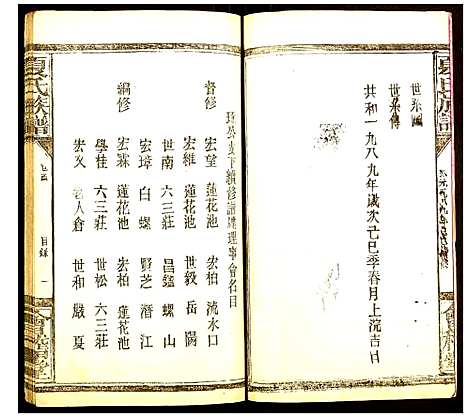 夏氏族譜
世系圖
世系傳
共和一九八九年歲次己巳季春月上浣吉日
會名目
督修 宏望 蓮花池 宏柏 流水口
宏維 蓮花池 世毅 岳陽
世南 六三莊 昌鑑 螺山
編修 宏璋 白螺 賢芝 潛江
宏霖 蓮花池 宏柏 蓮花池
學桂 六三莊 世松 六三莊
宏文 人倉 世和 嚴夏
夏氏族譜
目錄 一
會稽堂